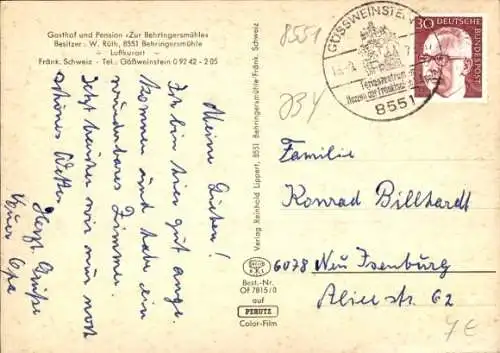 Gasthof und Pension »Zur Behringersmühle«
Besitzer: W. Rüth, 8551 Behringersmühle
- Luftkurort -
Fränk. Schweiz - Tel.: Gößweinstein 0 92 42 - 2 05
Meine Guten!
Ich bin hier gut ange-
kommen und habe ein
wunderbares Zimmer.
Jetzt brauchen wir nur noch
schönes Wetter
Herzl. Grüße
Euer Opa
Verlag Reinhold Lippert, 8551 Behringersmühle/Fränk. Schweiz
Best.-Nr.
Of 7815/0
auf
PERUTZ
Color-Film
8551
GÖSSWEINSTEIN
8551
30
DEUTSCHE
BUNDESPOST
Familie
Konrad Billhardt
6078 Neu Isenburg
Alicestr. 62
7€